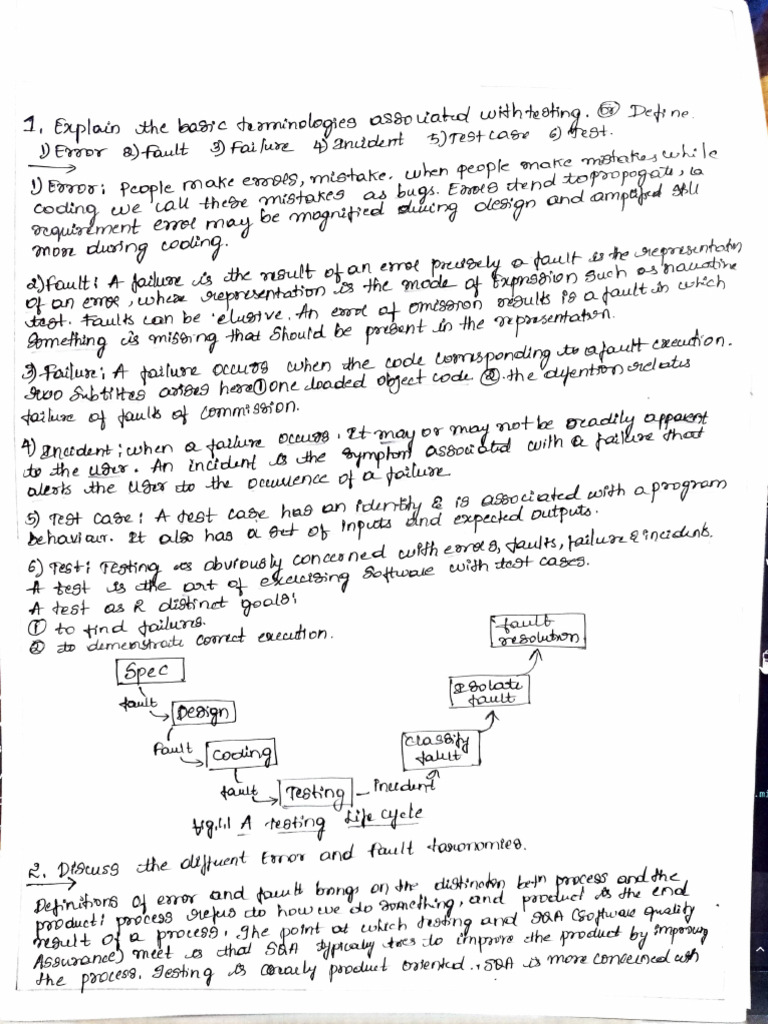 1. Explain the basic terminologies associated with testing. Or Define.
1) Error 2) Fault 3) Failure 4) Incident 5) Test case 6) Test.
1) Error: People make errors, mistake. when people make mistakes while
coding we call these mistakes as bugs. Errors tend to propogate, a
requirement error may be magnified during design and amplified still
more during coding.
2) Fault: A failure is the result of an error precisely a fault is the representation
of an error, where representation is the mode of expression such as narrative
test. Faults can be elusive. An error of omission results is a fault in which
something is missing that should be present in the representation.
3) Failure: A failure occurs when the code corresponding to a fault execution.
Two subtilties arises here ① one loaded object code ②. the defention relates
failure of faults of commission.
4) Incident: when a failure occurs. It may or may not be readily apparent
to the user. An incident is the symptom associated with a failure that
alerts the user to the occurence of a failure.
5) Test case: A test case has an identity & is associated with a program
behaviour. It also has a set of inputs and expected outputs.
6) Test: Testing is obviously concerned with errors, faults, failure & incidents.
A test is the art of exercising software with test cases.
A test as 2 distinct goals:
① to find failures.
② to demenstrate correct execution.
fault
resolution
Spec
fault
Isolate
fault
Design
Fault
Coding
classify
fault
fault
Testing
Incident
fig.1.1 A testing Life cycle
2. Discuss the different Error and Fault taxonomies.
Definitions of error and fault brings on the distinction betn process and the
product: process refers to how we do something, and product is the end
result of a process. The point at which testing and SQA (Software quality
Assurance) meet is that SQA typically tries to improve the product by improving
the process. Testing is product oriented. SQA is more concerned with